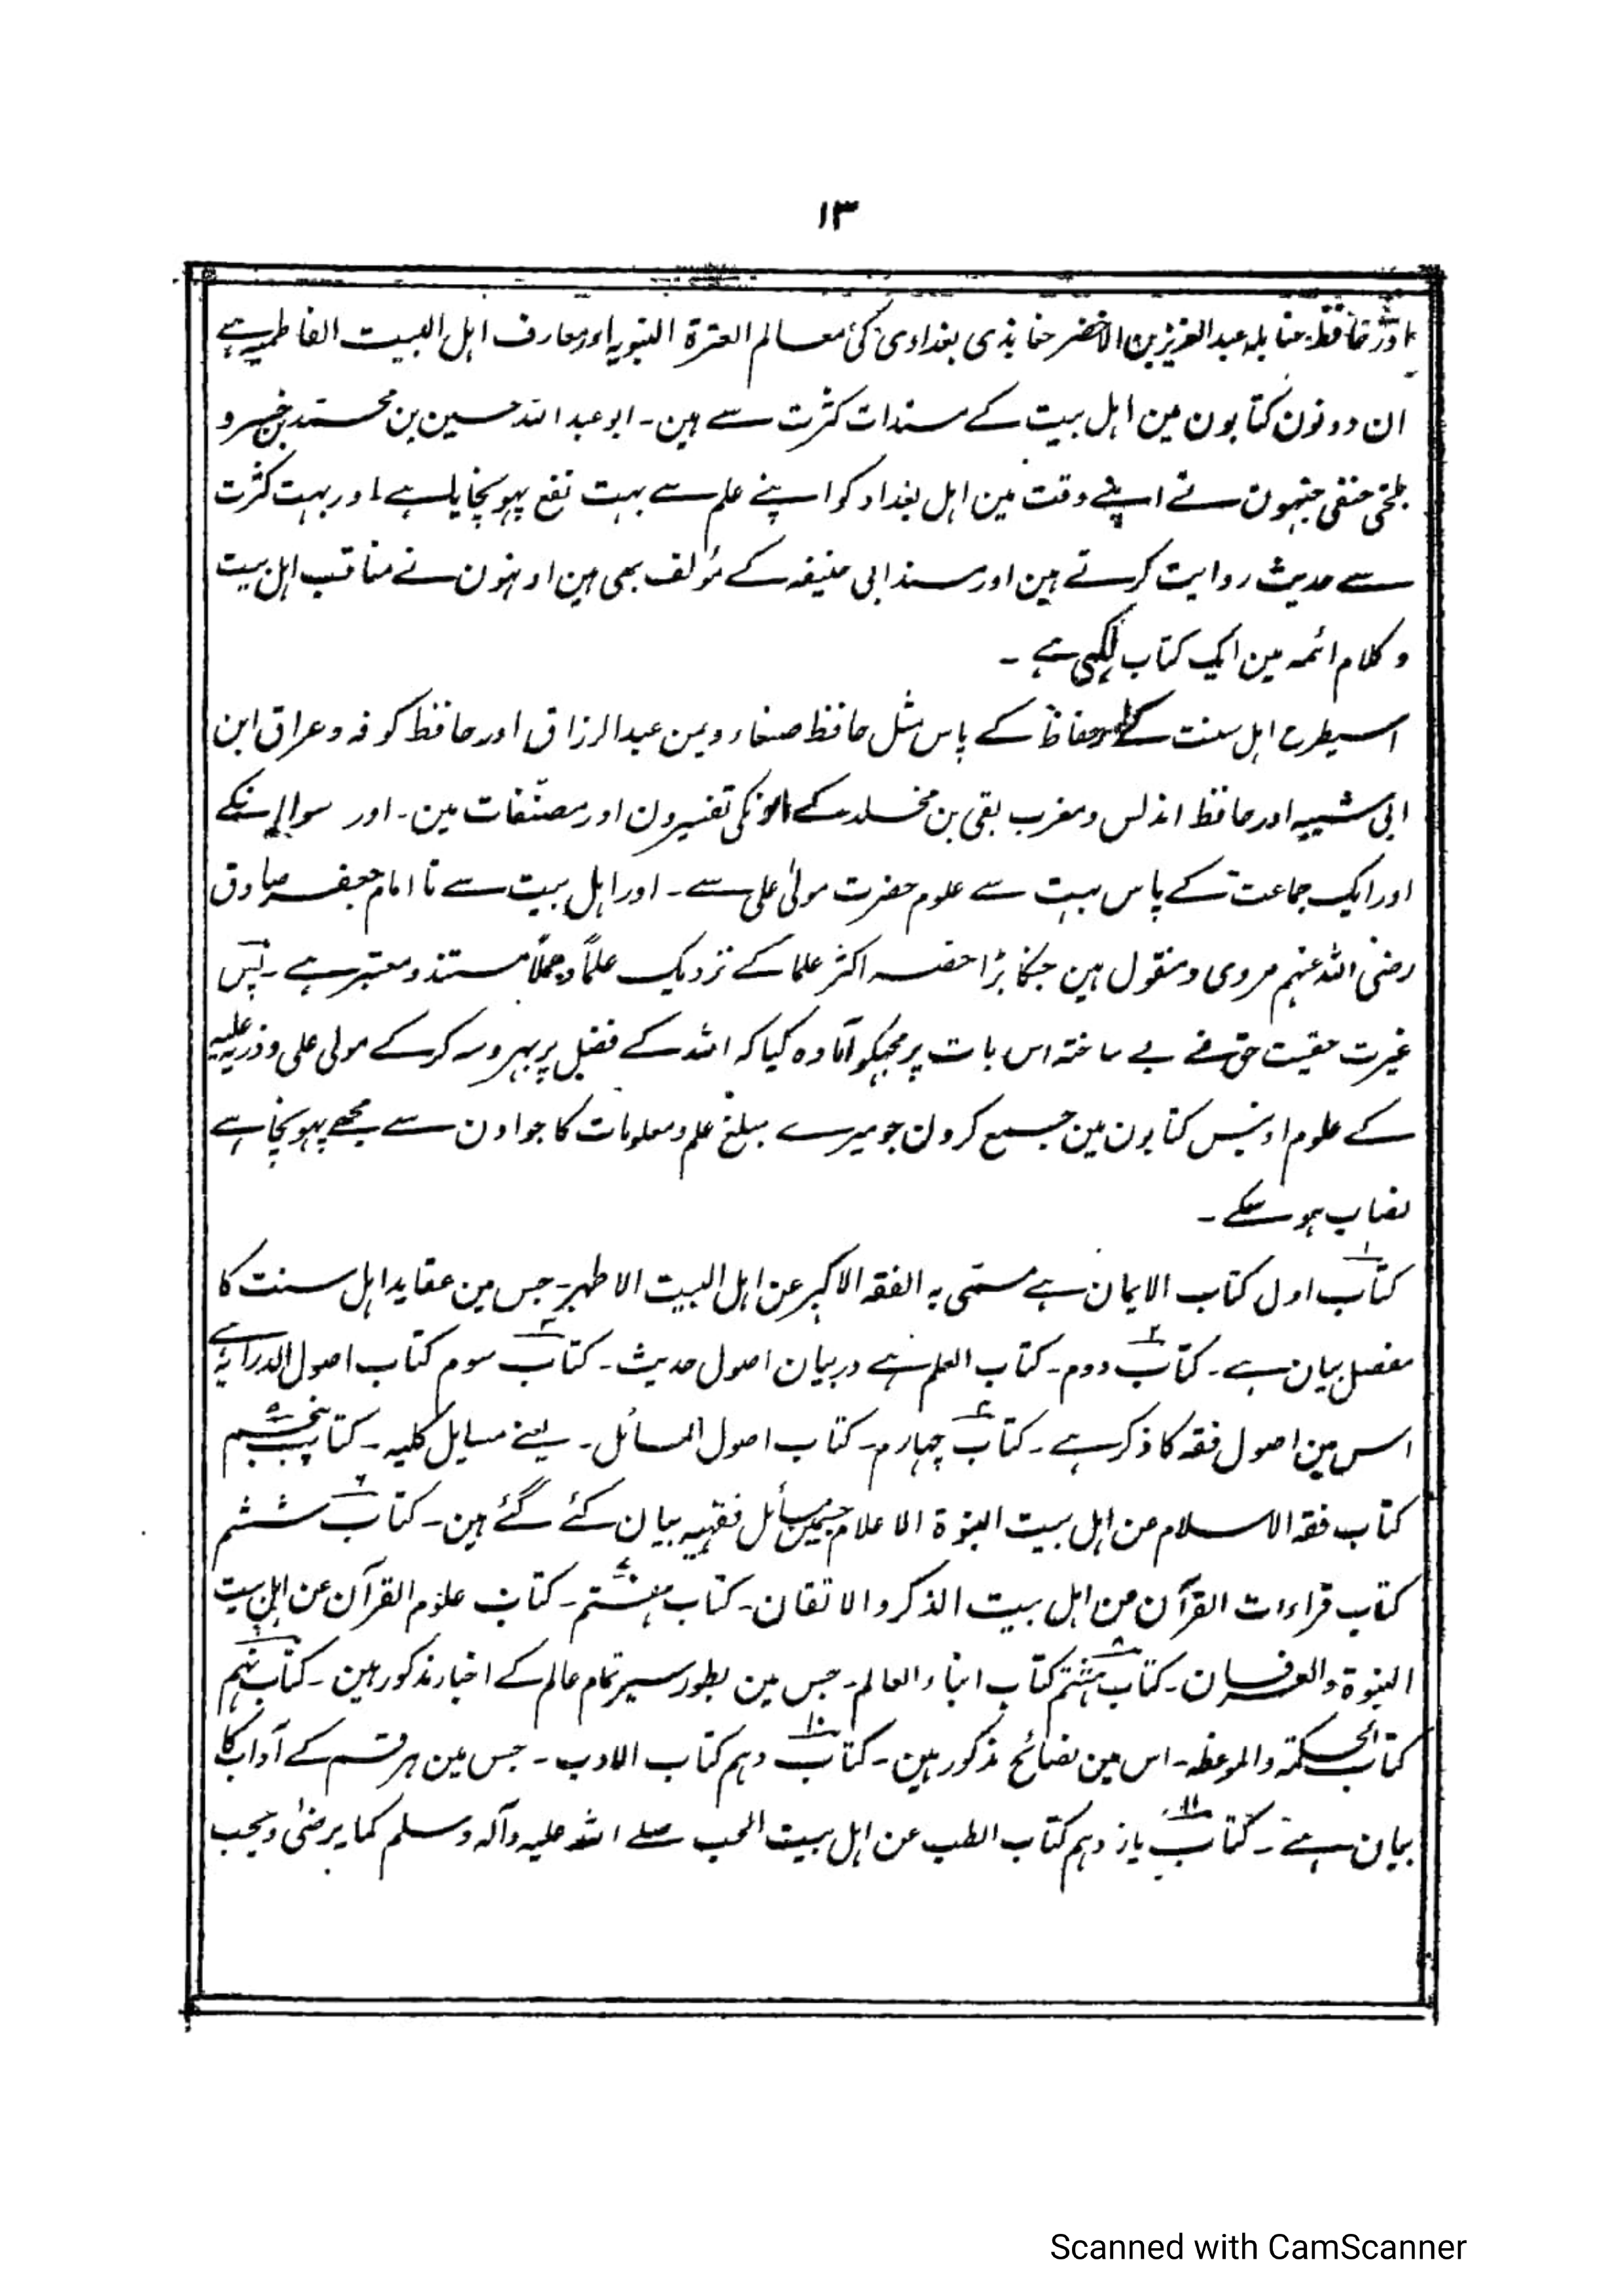 ۱۳
اور حافظ حنابلہ عبد العزیز بن الاخضر حنابذی بغدادی کی معالم العترۃ النبویہ اور معارف اہل البیت الفاطمیہ ہے
ان دونون کتابون مین اہل بیت کے مسندات کثرت سے ہین۔ ابو عبد اللہ حسین بن محمد بن خسرو
بلخی حنفی جنہون نے اپنے وقت مین اہل بغداد کو اپنے علم سے بہت نفع پہونچایا ہے اور بہت کثرت
سے حدیث روایت کرتے ہین اور مسند ابی حنیفہ کے مؤلف بھی ہین اونہون نے مناقب اہل بیت
و کلام ائمہ مین ایک کتاب لکھی ہے ۔
اسیطرح اہل سنت کے حفاظ کے پاس مثل حافظ صنعاء ویمن عبد الرزاق اور حافظ کوفہ و عراق ابن
ابی شیبہ اور حافظ اندلس و مغرب بقی بن مخلد کے اونکی تفسیرون اور مصنّفات مین۔ اور سوا انکے
اور ایک جماعت کے پاس بہت سے علوم حضرت مولیٰ علی سے۔ اور اہل بیت سے تا امام جعفر صادق
رضی اللہ عنہم مروی و منقول ہین جنکا بڑا حصہ اکثر علما کے نزدیک علماً وعملاً مستند و معتبر ہے۔ پس
غیرت حقیت حق نے بے ساختہ اس بات پر مجہکو آمادہ کیا کہ اللہ کے فضل پر بہروسہ کرکے مولی علی و ذریہ علیہ
کے علوم اونیس کتابون مین جمع کرون جو میرے مبلغ علم و معلومات کا جو اون سے مجھے پہونچا ہے
نصاب ہو سکے ۔
کتاب۱ اول کتاب الایمان ہے مسمّی بہ الفقہ الاکبر عن اہل البیت الاطہر۔ جس مین عقاید اہل سنت کا
مفصل بیان ہے۔ کتاب۲ دوم۔ کتاب العلم ہے دربیان اصول حدیث۔ کتاب۳ سوم کتاب اصول الدرایۃ ہے
اس مین اصول فقہ کا ذکر ہے۔ کتاب۴ چہارم۔ کتاب اصول المسائل۔ یعنے مسایل کلیہ۔ کتاب۵ پنجم
کتاب فقہ الاسلام عن اہل بیت النبوۃ الاعلام جسمین مسائل فقہیہ بیان کئے گئے ہین۔ کتاب۶ ششم
کتاب قراءات القرآن من اہل بیت الذکر والاتقان۔ کتاب۷ ہفتم۔ کتاب علوم القرآن عن اہل بیت
النبوۃ والعرفان۔ کتاب۸ ہشتم کتاب انباء العالم۔ جس مین بطور سیر تمام عالم کے اخبار مذکور ہین۔ کتاب۹ نہم
کتاب الحکمۃ والموعظہ۔ اس مین نصائح مذکور ہین۔ کتاب۱۰ دہم کتاب الادب۔ جس مین ہر قسم کے آداب کا
بیان ہے۔ کتاب۱۱ یازدہم کتاب الطب عن اہل بیت الحب صلے اللہ علیہ وآلہ وسلم کما یرضیٰ ویحب
Scanned with CamScanner